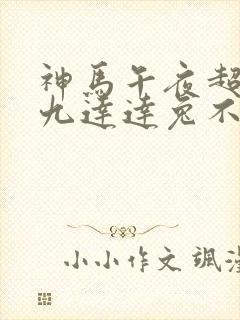 神馬午夜超
九達達兔不
小小作文 颯漫